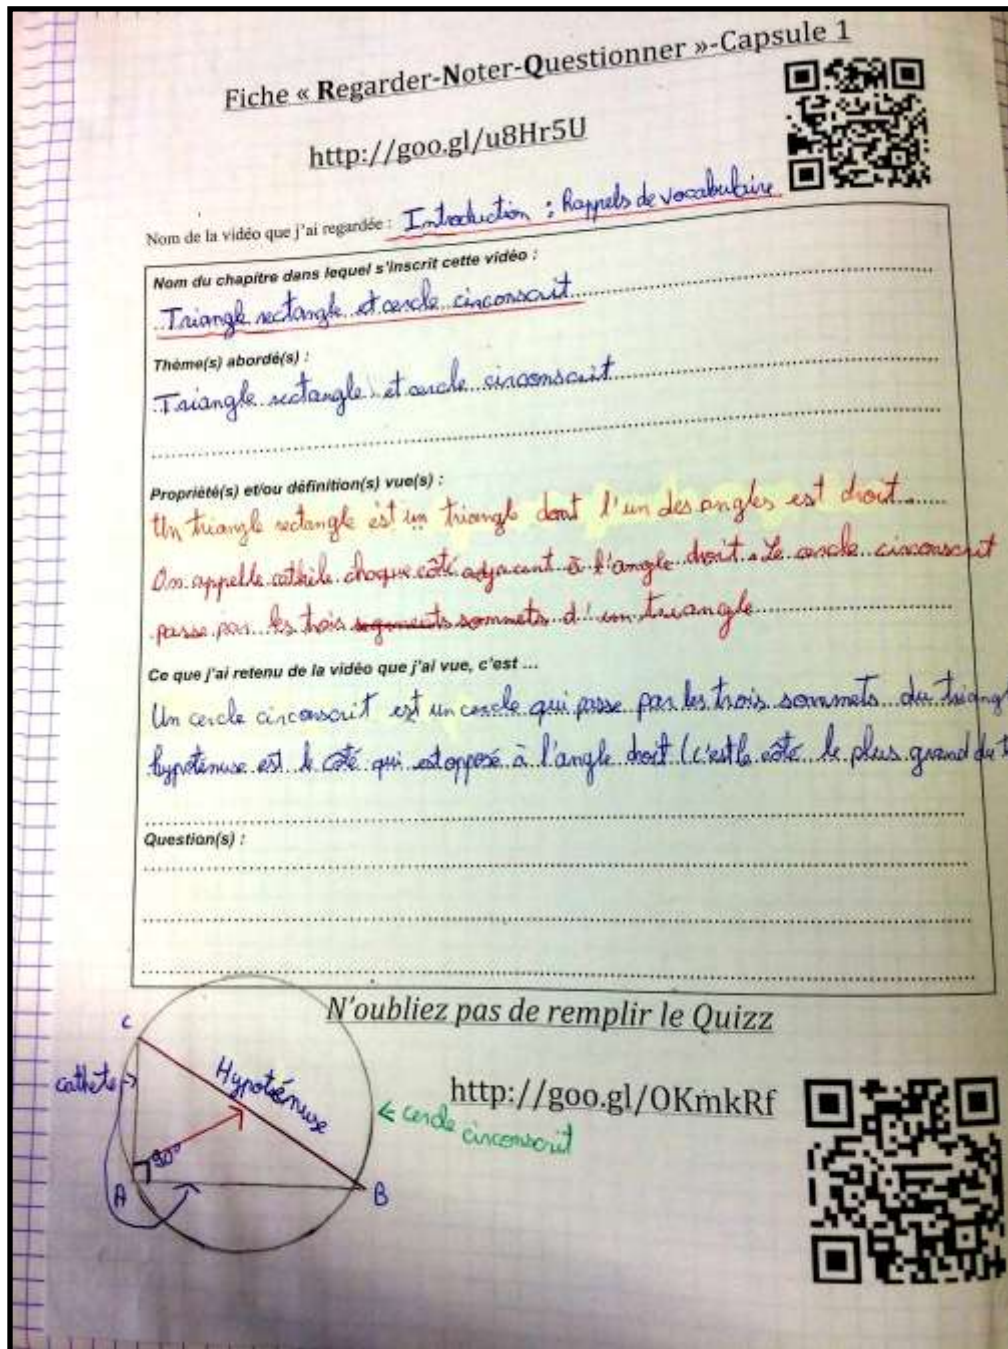 Fiche « Regarder-Noter-Questionner »-Capsule 1
http://goo.gl/u8Hr5U
Nom de la vidéo que j'ai regardée : Introduction : Rappels de vocabulaire
Nom du chapitre dans lequel s'inscrit cette vidéo :
Triangle rectangle et cercle circonscrit
Thème(s) abordé(s) :
Triangle rectangle et cercle circonscrit
Propriété(s) et/ou définition(s) vue(s) :
Un triangle rectangle est un triangle dont l'un des angles est droit
On appelle cathète chaque côté adjacent à l'angle droit. Le cercle circonscrit
passe par les trois segments sommets d'un triangle
Ce que j'ai retenu de la vidéo que j'ai vue, c'est ...
Un cercle circonscrit est un cercle qui passe par les trois sommets du triangl
hypoténuse est le côté qui est opposé à l'angle droit (c'est le côté le plus grand du t
Question(s) :
N'oubliez pas de remplir le Quizz
http://goo.gl/OKmkRf
C
cathete
Hypoténuse
← cercle
circonscrit
90°
A
B